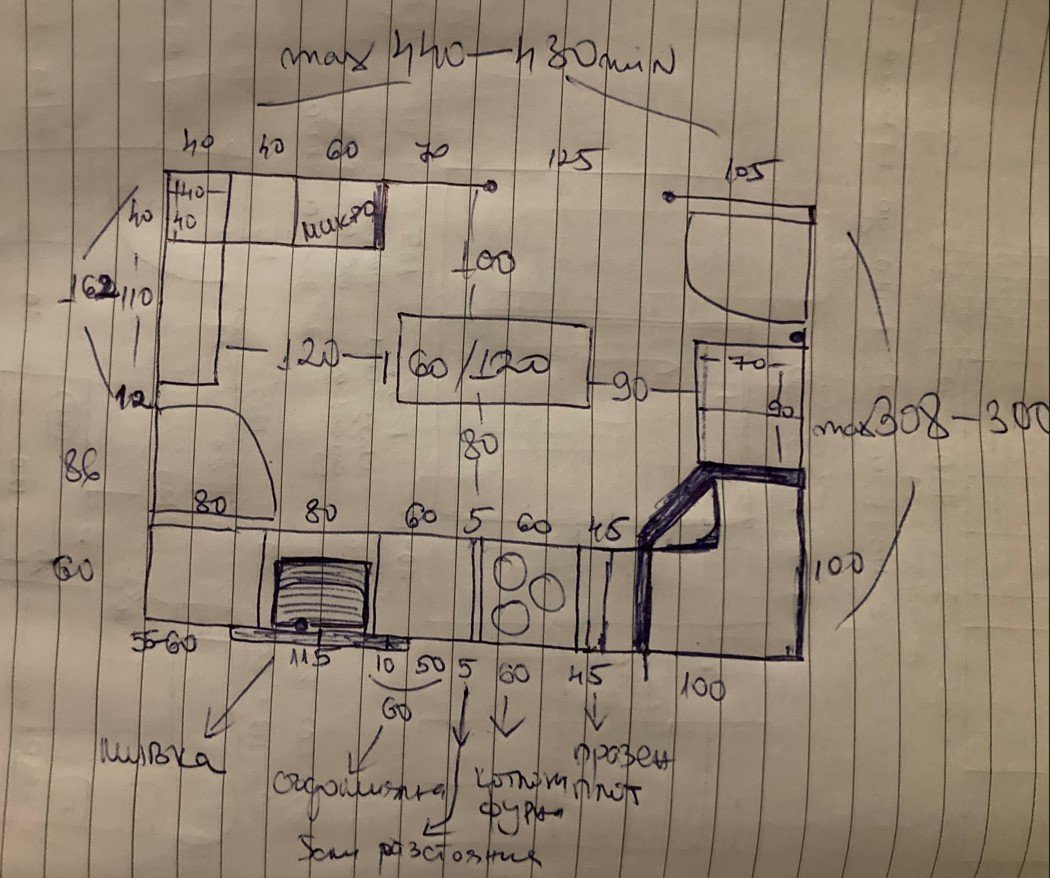 max 440-430 min
40 40 60 70 125 105
40
40
40 микро
162 110 100
120 60/120 90 70
90
max 308-300
12
80
86
80 80 60 5 60 45
60 100
55-60
115 10 50 5 60 45 100
60
мивка
съдомиялна
котлони
фурна
празен
плот
5см разстояние